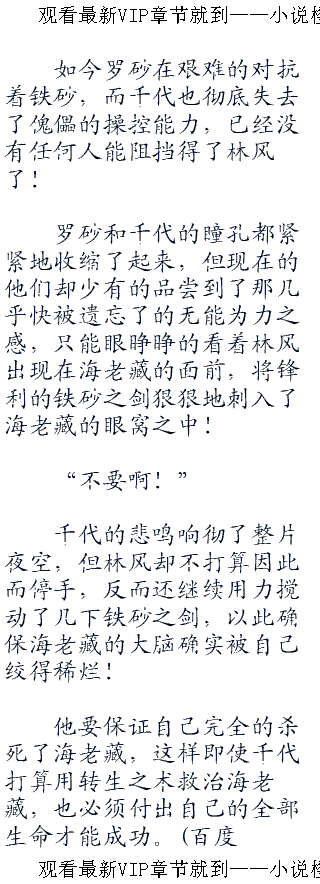 观看最新VIP章节就到——小说检
如今罗砂在艰难的对抗
着铁砂，而千代也彻底失去
了傀儡的操控能力，已经没
有任何人能阻挡得了林风
了！
罗砂和千代的瞳孔都紧
紧地收缩了起来，但现在的
他们却少有的品尝到了那几
乎快被遗忘了的无能为力之
感，只能眼睁睁的看着林风
出现在海老藏的面前，将锋
利的铁砂之剑狠狠地刺入了
海老藏的眼窝之中！
“不要啊！”
千代的悲鸣响彻了整片
夜空，但林风却不打算因此
而停手，反而还继续用力搅
动了几下铁砂之剑，以此确
保海老藏的大脑确实被自己
绞得稀烂！
他要保证自己完全的杀
死了海老藏，这样即使千代
打算用转生之术救治海老
藏，也必须付出自己的全部
生命才能成功。(百度
观看最新VIP章节就到——小说检